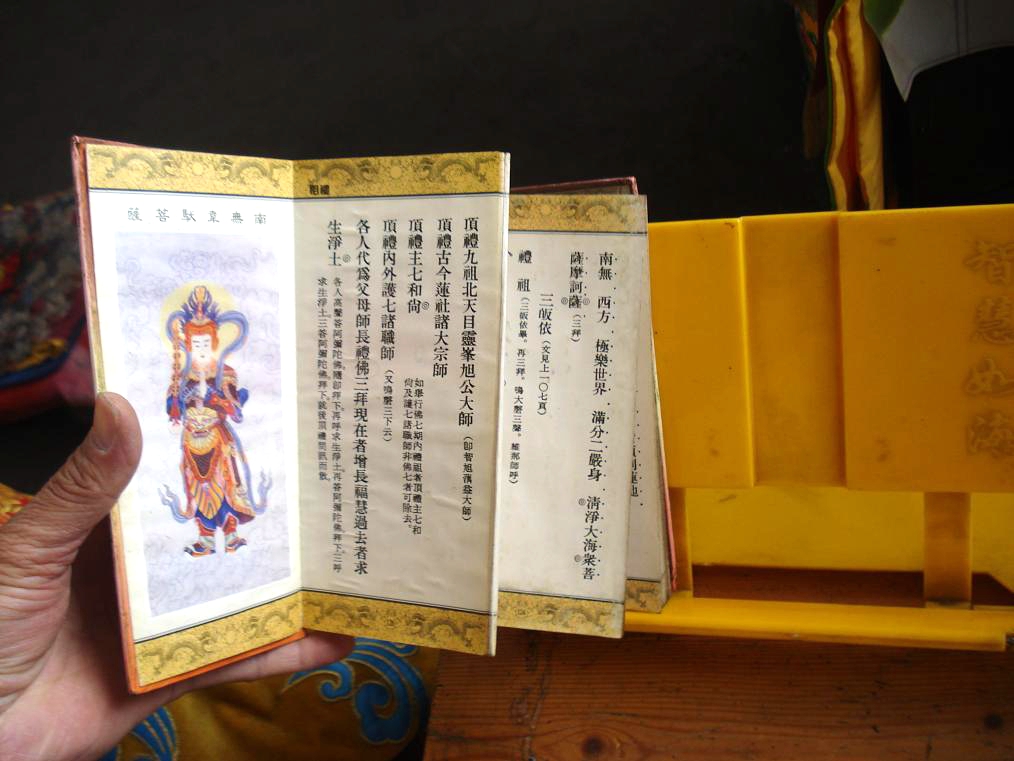 南無韋馱菩薩
禮祖
頂禮九祖北天目靈峯旭公大師（卽智旭蕅益大師）
頂禮古今蓮社諸大宗師
頂禮主七和尙
如舉行佛七期內禮祖者頂禮主七和
尙及護七諸職師非佛七者可除去。
頂禮內外護七諸職師（又鳴磬三下云）
各人代爲父母師長禮佛三拜現在者增長福慧過去者求
生淨土
各人高聲答阿彌陀佛隨卽拜下。再呼求生淨土。再答阿彌陀佛拜下三呼
求生淨土。三答阿彌陀佛拜下。就後頂禮問訊而散。
南無 西方 極樂世界 滿分二嚴身 淸淨大海衆菩
薩摩訶薩（三拜）
三皈依（文見上一〇七頁）
禮 祖（三皈依畢。再三拜。鳴大磬三聲。維那師呼）
智慧如海